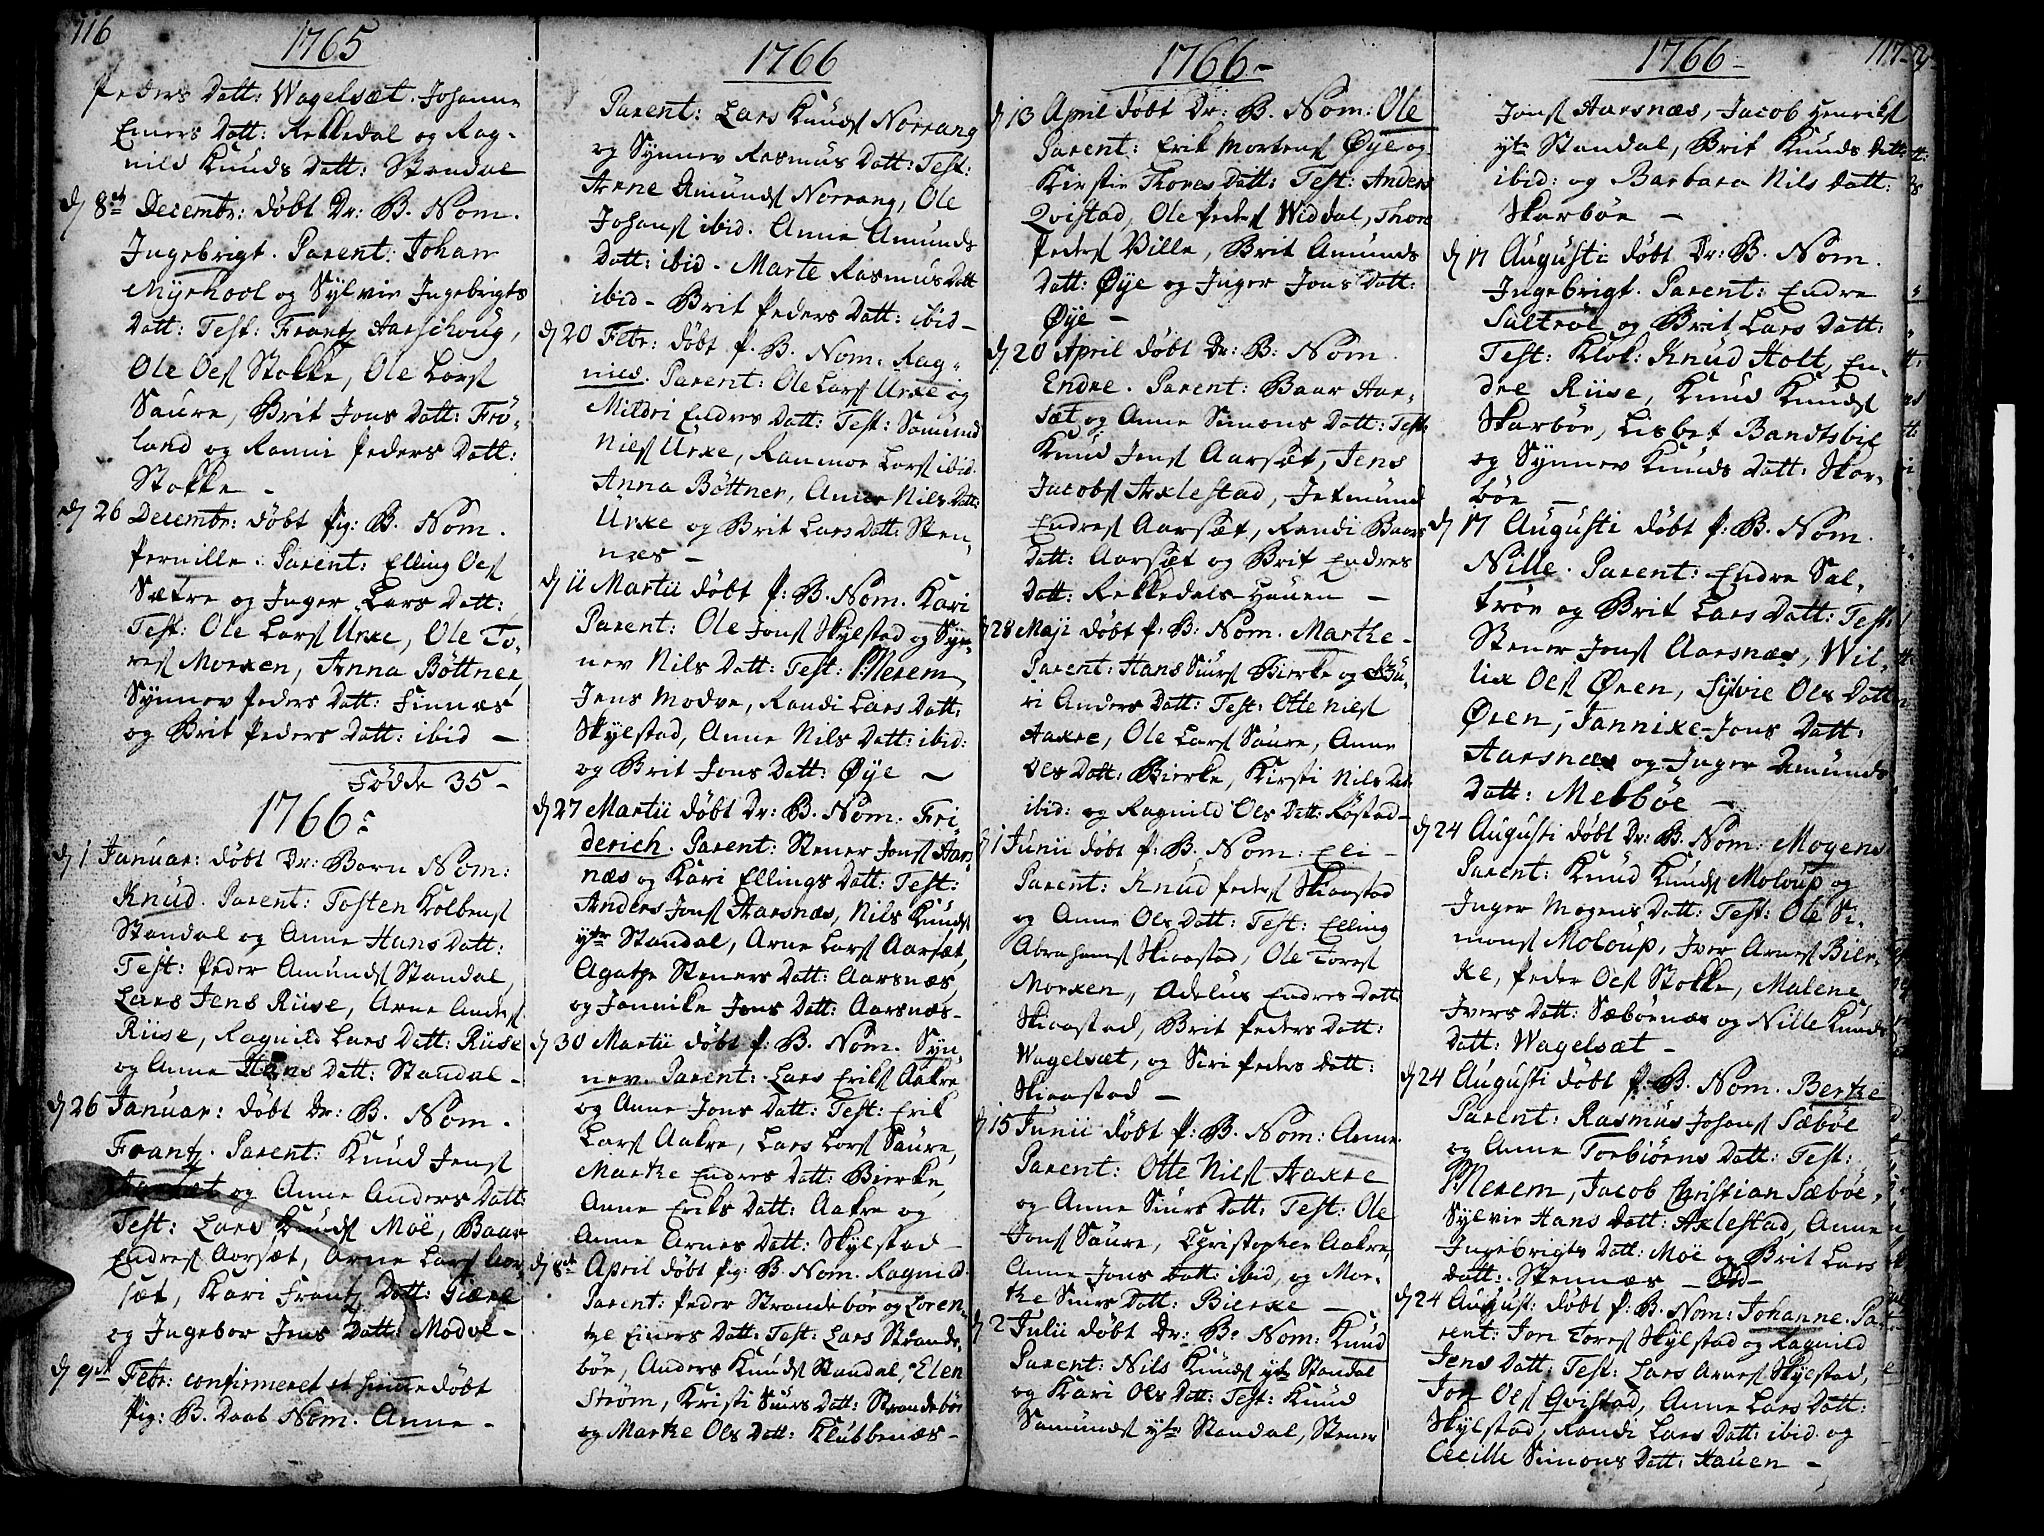 116
1765
Peders Datt: Wagelsæt. Johanne
Einers Datt: Rekkedal og Rag-
nild Knuds Datt: Standal
d 8de Decembr: døbt Dr: B. Nom.
Ingebrigt. Parent: Johan
Myrhool og Sylvie Ingebrigts
Datt: Test: Frantz Aarschoug,
Ole Oles Stokke, Ole Lars
Saure, Brit Jons Datt: Frö-
land og Ranni Peders Datt:
Stokke -
d 26 Decembr: døbt Pig: B. Nom.
Pernille. Parent: Elling Oes
Sætre og Inger Lars Datt:
Test: Ole Lars Urke, Ole To-
res Morken, Anna Böttner,
Synnev Peders Datt: Finnæs
og Brit Peders Datt: ibid -
Födde 35 -
1766:
d 1 Januar: døbt Dr: Barn Nom:
Knud. Parent: Tosten Kolbens
Standal og Anne Hans Datt:
Test: Peder Amunds Standal,
Lars Jens Riise, Arne Anders
Riise, Ragnild Lars Datt: Riise
og Anne Hans Datt: Standal -
d 26 Januar: døbt Dr: B. Nom.
Frantz. Parent: Knud Jens
Aarsæt og Anne Anders Datt:
Test: Lars Knuds Moë, Baar
Endres Aarsæt, Arne Lars Aar-
sæt, Kari Frantz Datt: Giære
og Ingebor Jens Datt: Modve -
d 9de Febr: confirmeret et hiemedøbt
Pig: B. Daab Nom: Anne -
1766
Parent: Lars Knuds Norrang
og Synnev Rasmus Datt: Test:
Arne Amunds Norrang, Ole
Johans ibid. Anne Amunds
Datt: ibid - Marte Rasmus Datt
ibid - Brit Peders Datt: ibid -
d 20 Febr: døbt P. B. Nom: Rag-
nild. Parent: Ole Lars Urke og
Mildri Endres Datt: Test: Samund
Nils Urke, Rasmoe Lars ibid.
Anna Böttner, Anne Nils Datt:
Urke og Brit Lars Datt: Sten-
næs -
d 11 Martii døbt P: B. Nom. Kari
Parent: Ole Jons Skylstad og Syn-
nev Nils Datt: Test: Merem
Jens Modve, Randi Lars Datt:
Skylstad, Anne Nils Datt: ibid:
og Brit Jons Datt: Øye -
d 27 Martii døbt Dr: B. Nom: Fri-
derich. Parent: Stener Jons Aars-
næs og Kari Ellings Datt: Test:
Anders Jons Aarsnæs, Nils Knuds
ytr Standal, Arne Lars Aarsæt,
Agathe Steners Datt: Aarsnæs
og Jannike Jons Datt: Aarsnæs -
d 30 Martii døbt P: B. Nom. Syn-
nev. Parent: Lars Eriks Aakre
og Anne Jons Datt: Test: Erik
Lars Aakre, Lars Lars Saure,
Marthe Endres Datt: Bierke,
Anne Eriks Datt: Aakre og
Anne Arnes Datt: Skylstad -
d 8de April døbt Pig: B. Nom. Ragnild.
Parent: Peder Strandebøe og Loren-
tze Einers Datt: Test: Lars Strande-
böe, Anders Knuds Standal, Elen
Ström, Kirsti Siurs Datt: Strandebøe
og Marthe Ols Datt: Klubbenæs -
1766 -
d 13 April døbt Dr: B. Nom: Ole
Parent: Erik Mortens Øye og
Kirstie Thores Datt: Test: Anders
Qvistad, Ole Peders Widdal, Thore
Peders Ville, Brit Amunds
Datt: Øye og Inger Jons Datt:
Øye -
d 20 April døbt Dr: B: Nom.
Endre. Parent: Baar Aar-
sæt og Anne Simons Datt: Test:
Knud Jens Aarsæt, Jens
Jacobs Axlestad, Jetmund
Endres Aarsæt, Randi Baars
Datt: Aarsæt og Brit Endres
Datt: Rekkedals-Hauen -
d 28 Maji døbt P: B: Nom. Marthe -
Parent: Hans Siurs Bierke og Gu-
ri Anders Datt: Test: Otte Nils
Aakre, Ole Lars Saure, Anne
Ols Datt: Bierke, Kirsti Nils Datt:
ibid: og Ragnild Ols Datt: Røstad -
d 1 Junii døbt P: B. Nom: Eli -
Parent: Knud Peders Skiaastad
og Anne Ols Datt: Test: Elling
Abrahams Skiaastad, Ole Tores
Morken, Adelus Endres Datt:
Skiaastad, Brit Peders Datt:
Wagelsæt, og Siri Peders Datt:
Skiaastad -
d 15 Junii døbt P: B. Nom: Anne.
Parent: Otte Nils Aakre
og Anne Siurs Datt: Test: Ole
Jons Saure, Christopher Aakre,
Anne Jons Datt: ibid, og Mar-
the Siurs Datt: Bierke -
d 2 Julii døbt Dr: B: Nom: Knud
Parent: Nils Knuds ytr Standal
og Kari Ols Datt: Test: Knud
Samunds ytr Standal, Stener
1766 -
117
Jons Aarsnæs, Jacob Henriks
ytr Standal, Brit Knuds Datt:
ibid: og Barbara Nils Datt:
Skarbøe -
d 17 Augusti døbt Dr: B. Nom.
Ingebrigt. Parent: Endre
Saltrøe og Brit Lars Datt:
Test: Klok: Knud Holt, En-
dre Riise, Knud Knuds
Skarbøe, Lisbet Bandtsbil
og Synnev Knuds Datt: Skar-
bøe -
d 17 Augusti døbt P: B. Nom.
Nille. Parent: Endre Sal-
trøe og Brit Lars Datt: Test:
Stener Jons Aarsnæs, Wil-
lix Oels Øren, Sylvie Ols Datt:
Øren, Jannike Jons Datt:
Aarsnæs og Inger Amunds
Datt: Melbøe -
d 24 Augusti døbt Dr: B. Nom: Mogens
Parent: Knud Knuds Moloup og
Inger Mogens Datt: Test: Ole Si-
mons Moloup, Iver Arnes Bier-
ke, Peder Oels Stokke, Malene
Ivers Datt: Sæbøenæs og Nille Knuds
Datt: Wagelsæt -
d 24 Augusti døbt P: B. Nom. Berthe
Parent: Rasmus Johans Sæbøe
og Anne Torbiörns Datt: Test:
Merem, Jacob Christian Sæbøe,
Sylvie Hans Datt: Axlestad, Anne
Ingebrigts Datt: Moë og Brit Lars
Datt: Stennæs -
d 24 August: døbt P: B. Nom: Johanne. Pa-
rent: Jon Tores Skylstad og Ragnild
Jens Datt: Test: Lars Arnes Skylstad,
Jon Oels Qvistad, Anne Lars Datt:
Skylstad, Randi Lars Datt: ibid. og
Cecille Simons Datt: Hauen -